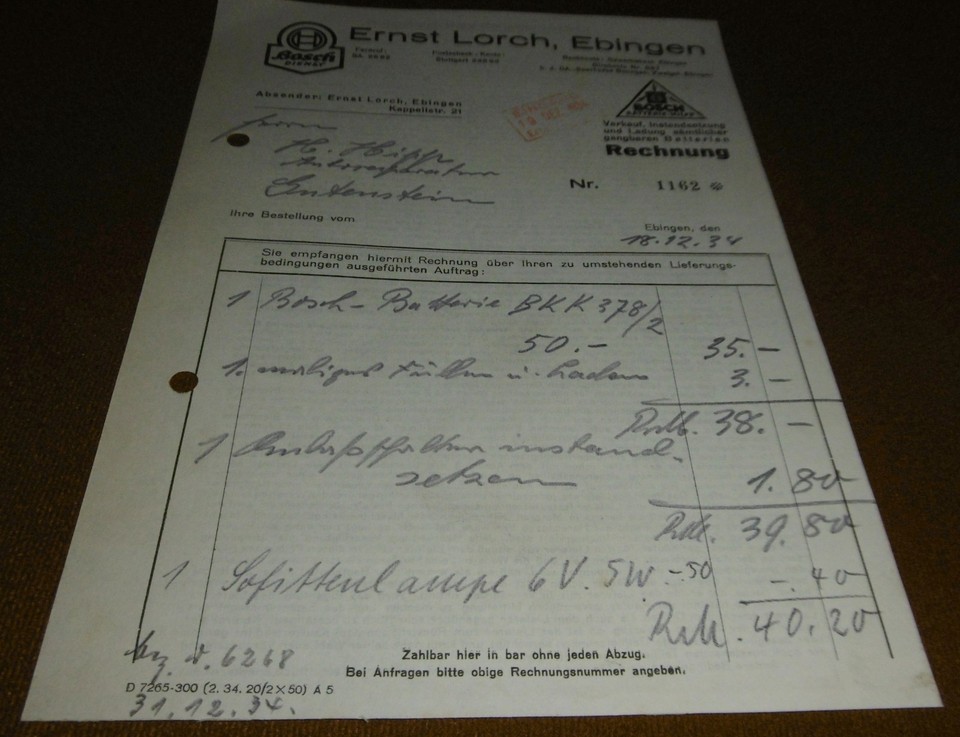 BOSCH
DIENST
Ernst Lorch, Ebingen
Stuttgart
Absender: Ernst Lorch, Ebingen
Kappellstr. 21
BOSCH
Verkauf, Instandsetzung
und Ladung sämtlicher
gangbaren Batterien
Rechnung
Herrn
H. Hipp
Autoreparatur
Nr. 1162 *
Ihre Bestellung vom
Ebingen, den
18.12.34
Sie empfangen hiermit Rechnung über Ihren zu umstehenden Lieferungs-
bedingungen ausgeführten Auftrag:
1 Bosch-Batterie BKK 378/2
50.- 35.-
1. maliges Füllen u. Laden 3.-
38.-
1 Anlaßschalter instand-
setzen 1.80
39.80
1 Sofittenlampe 6V. 5W. -50 -.40
40.20
6268
Zahlbar hier in bar ohne jeden Abzug.
Bei Anfragen bitte obige Rechnungsnummer angeben.
D 7265-300 (2. 34. 20/2×50) A 5
31.12.34.